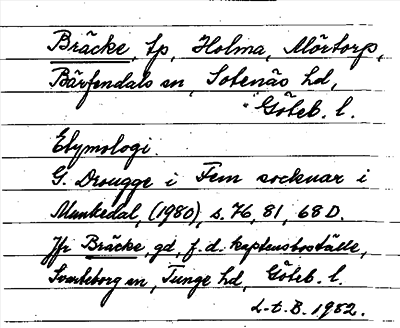 Bräcke, tp, Holma, Mörtorp,
Bärfendals sn, Sotenäs hd,
Göteb. l.
Etymologi.
G. Drougge i Fem socknar i
Munkedal, (1980), s. 76, 81, 68 D.
Jfr Bräcke, gd, f.d. kaptensboställe,
Svarteborg sn, Tunge hd, Göteb. l.
L.t.B. 1982.